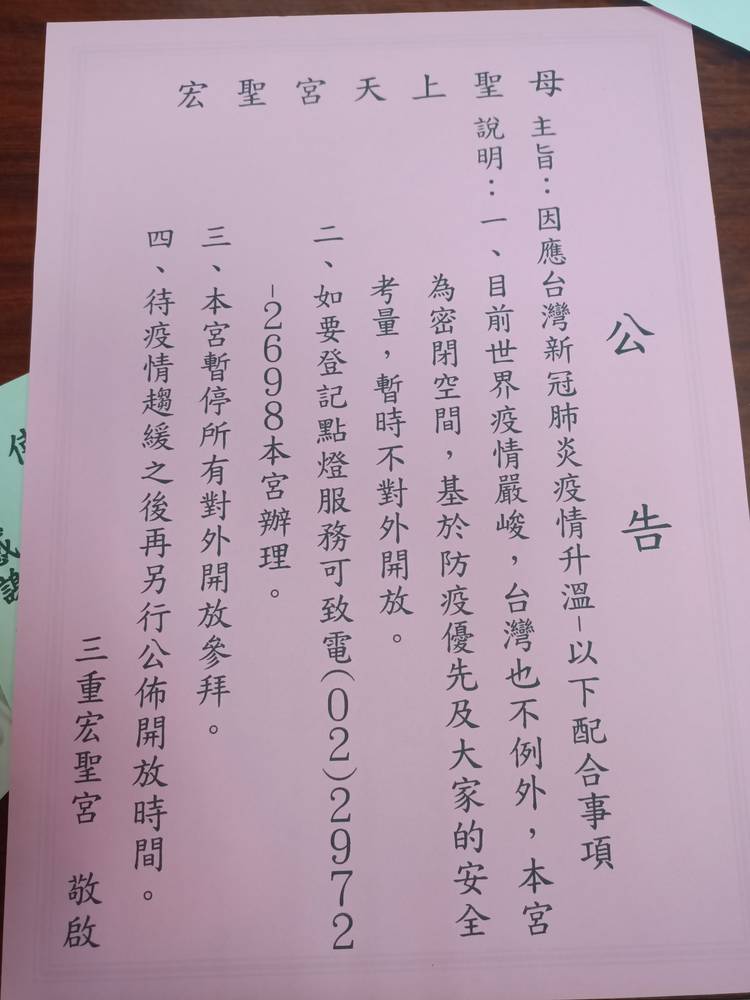 母聖上天宮聖宏
公告
主旨：因應台灣新冠肺炎疫情升溫-以下配合事項
說明：一、目前世界疫情嚴峻，台灣也不例外，本宮
為密閉空間，基於防疫優先及大家的安全
考量，暫時不對外開放。
二、如要登記點燈服務可致電(02)2972
-2698本宮辦理。
三、本宮暫停所有對外開放參拜。
四、待疫情趨緩之後再另行公佈開放時間。
三重宏聖宮 敬啟